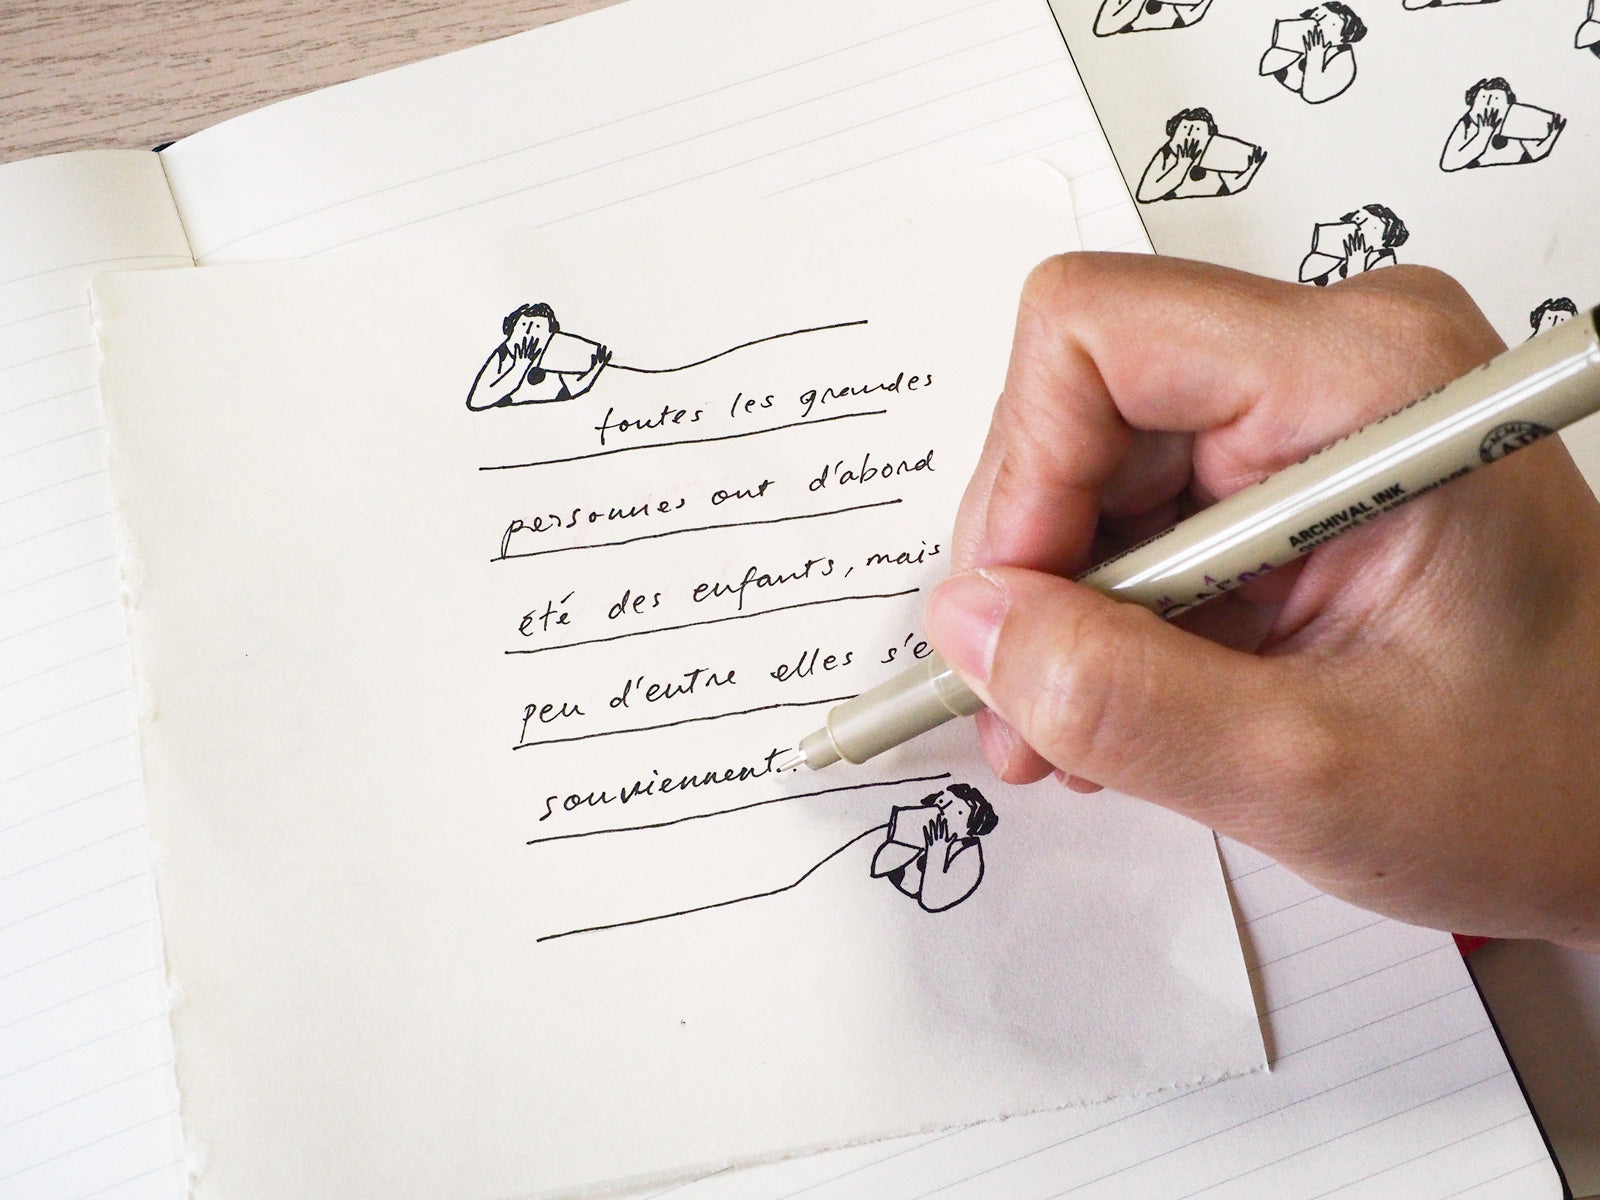 toutes les grandes
personnes ont d'abord
été des enfants, mais
peu d'entre elles s'e
souviennent..
ARCHIVAL INK